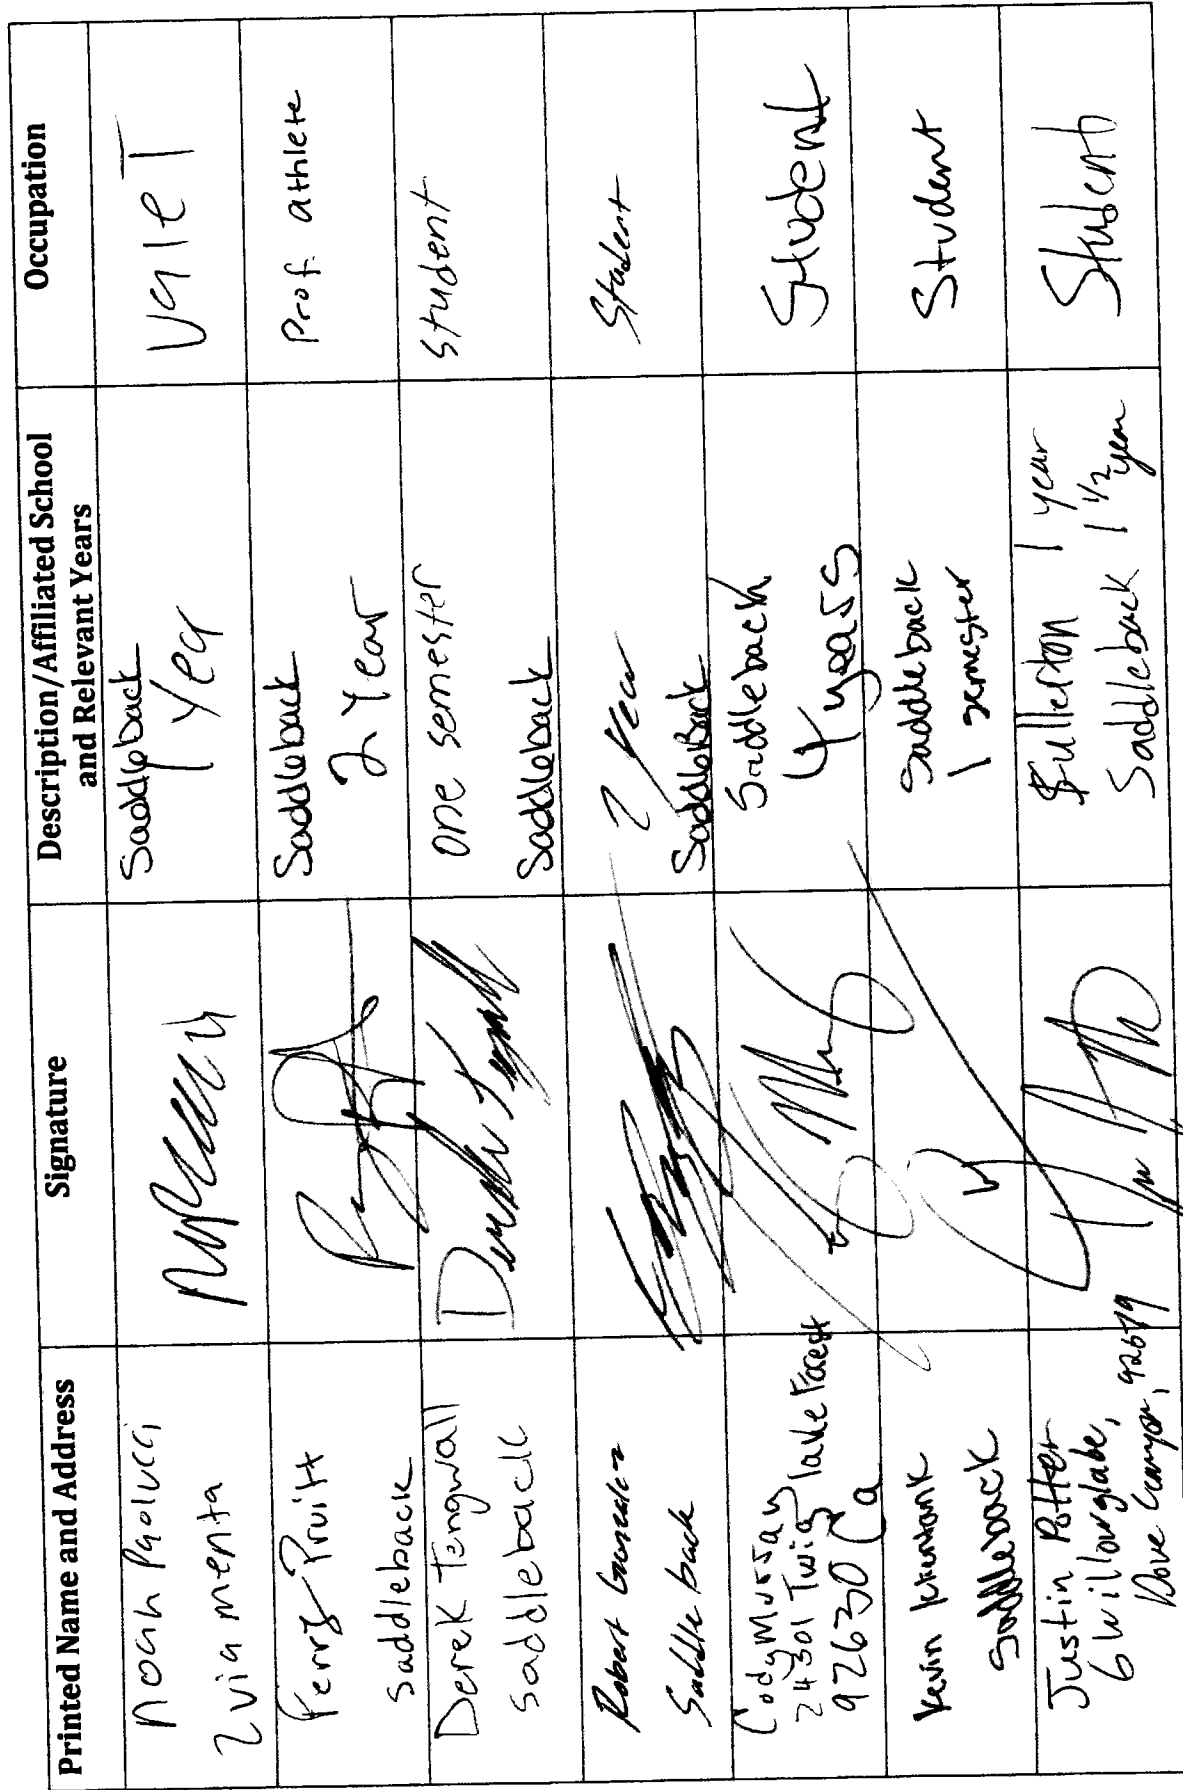 Printed Name and Address
Signature
Description/Affiliated School
and Relevant Years
Occupation
Noah Paolucci
2 via menta
Saddleback
1 Year
Valet
Perry Pruitt
Saddleback
Saddleback
2 Year
Prof. athlete
Derek Tengwall
Saddleback
one semester
Saddleback
student
Robert Gonzalez
Saddle back
2 Year
SaddleBack
Student
Cody Murray
24301 Twig lake Forest
92630 Ca
Saddleback
4 years
Student
Kevin
Saddleback
Saddleback
1 semester
Student
Justin Potter
6 Willowglade,
Dove Canyon, 92679
Fullerton 1 year
Saddleback 1 1/2 year
Student